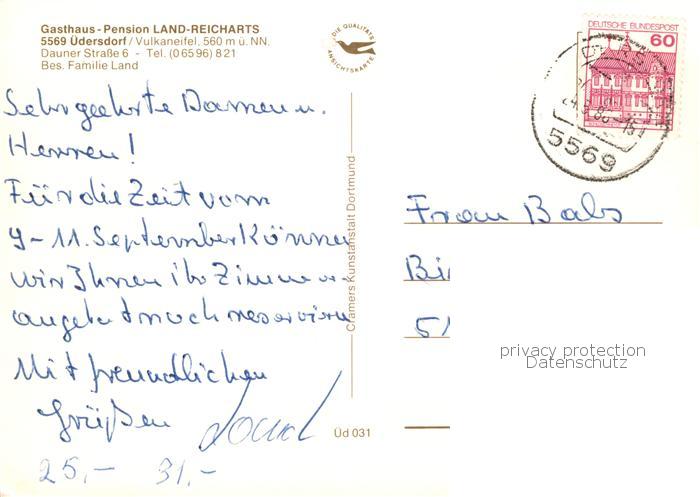 Gasthaus - Pension LAND-REICHARTS
5569 Üdersdorf / Vulkaneifel, 560 m ü. NN.
Dauner Straße 6 - Tel. (0 65 96) 8 21
Bes. Familie Land
DIE QUALITÄTS
ANSICHTSKARTE
DEUTSCHE BUNDESPOST
60
5569
Sehr geehrte Damen u.
Herren!
Für die Zeit vom
9-11. September Können
wir Ihnen ihr Zimmer
angebot noch reservieren
Mit freundlichen
Grüßen Land
25,- 31,-
Cramers Kunstanstalt Dortmund
Üd 031
Frau Babs
Bi
51
privacy protection
Datenschutz